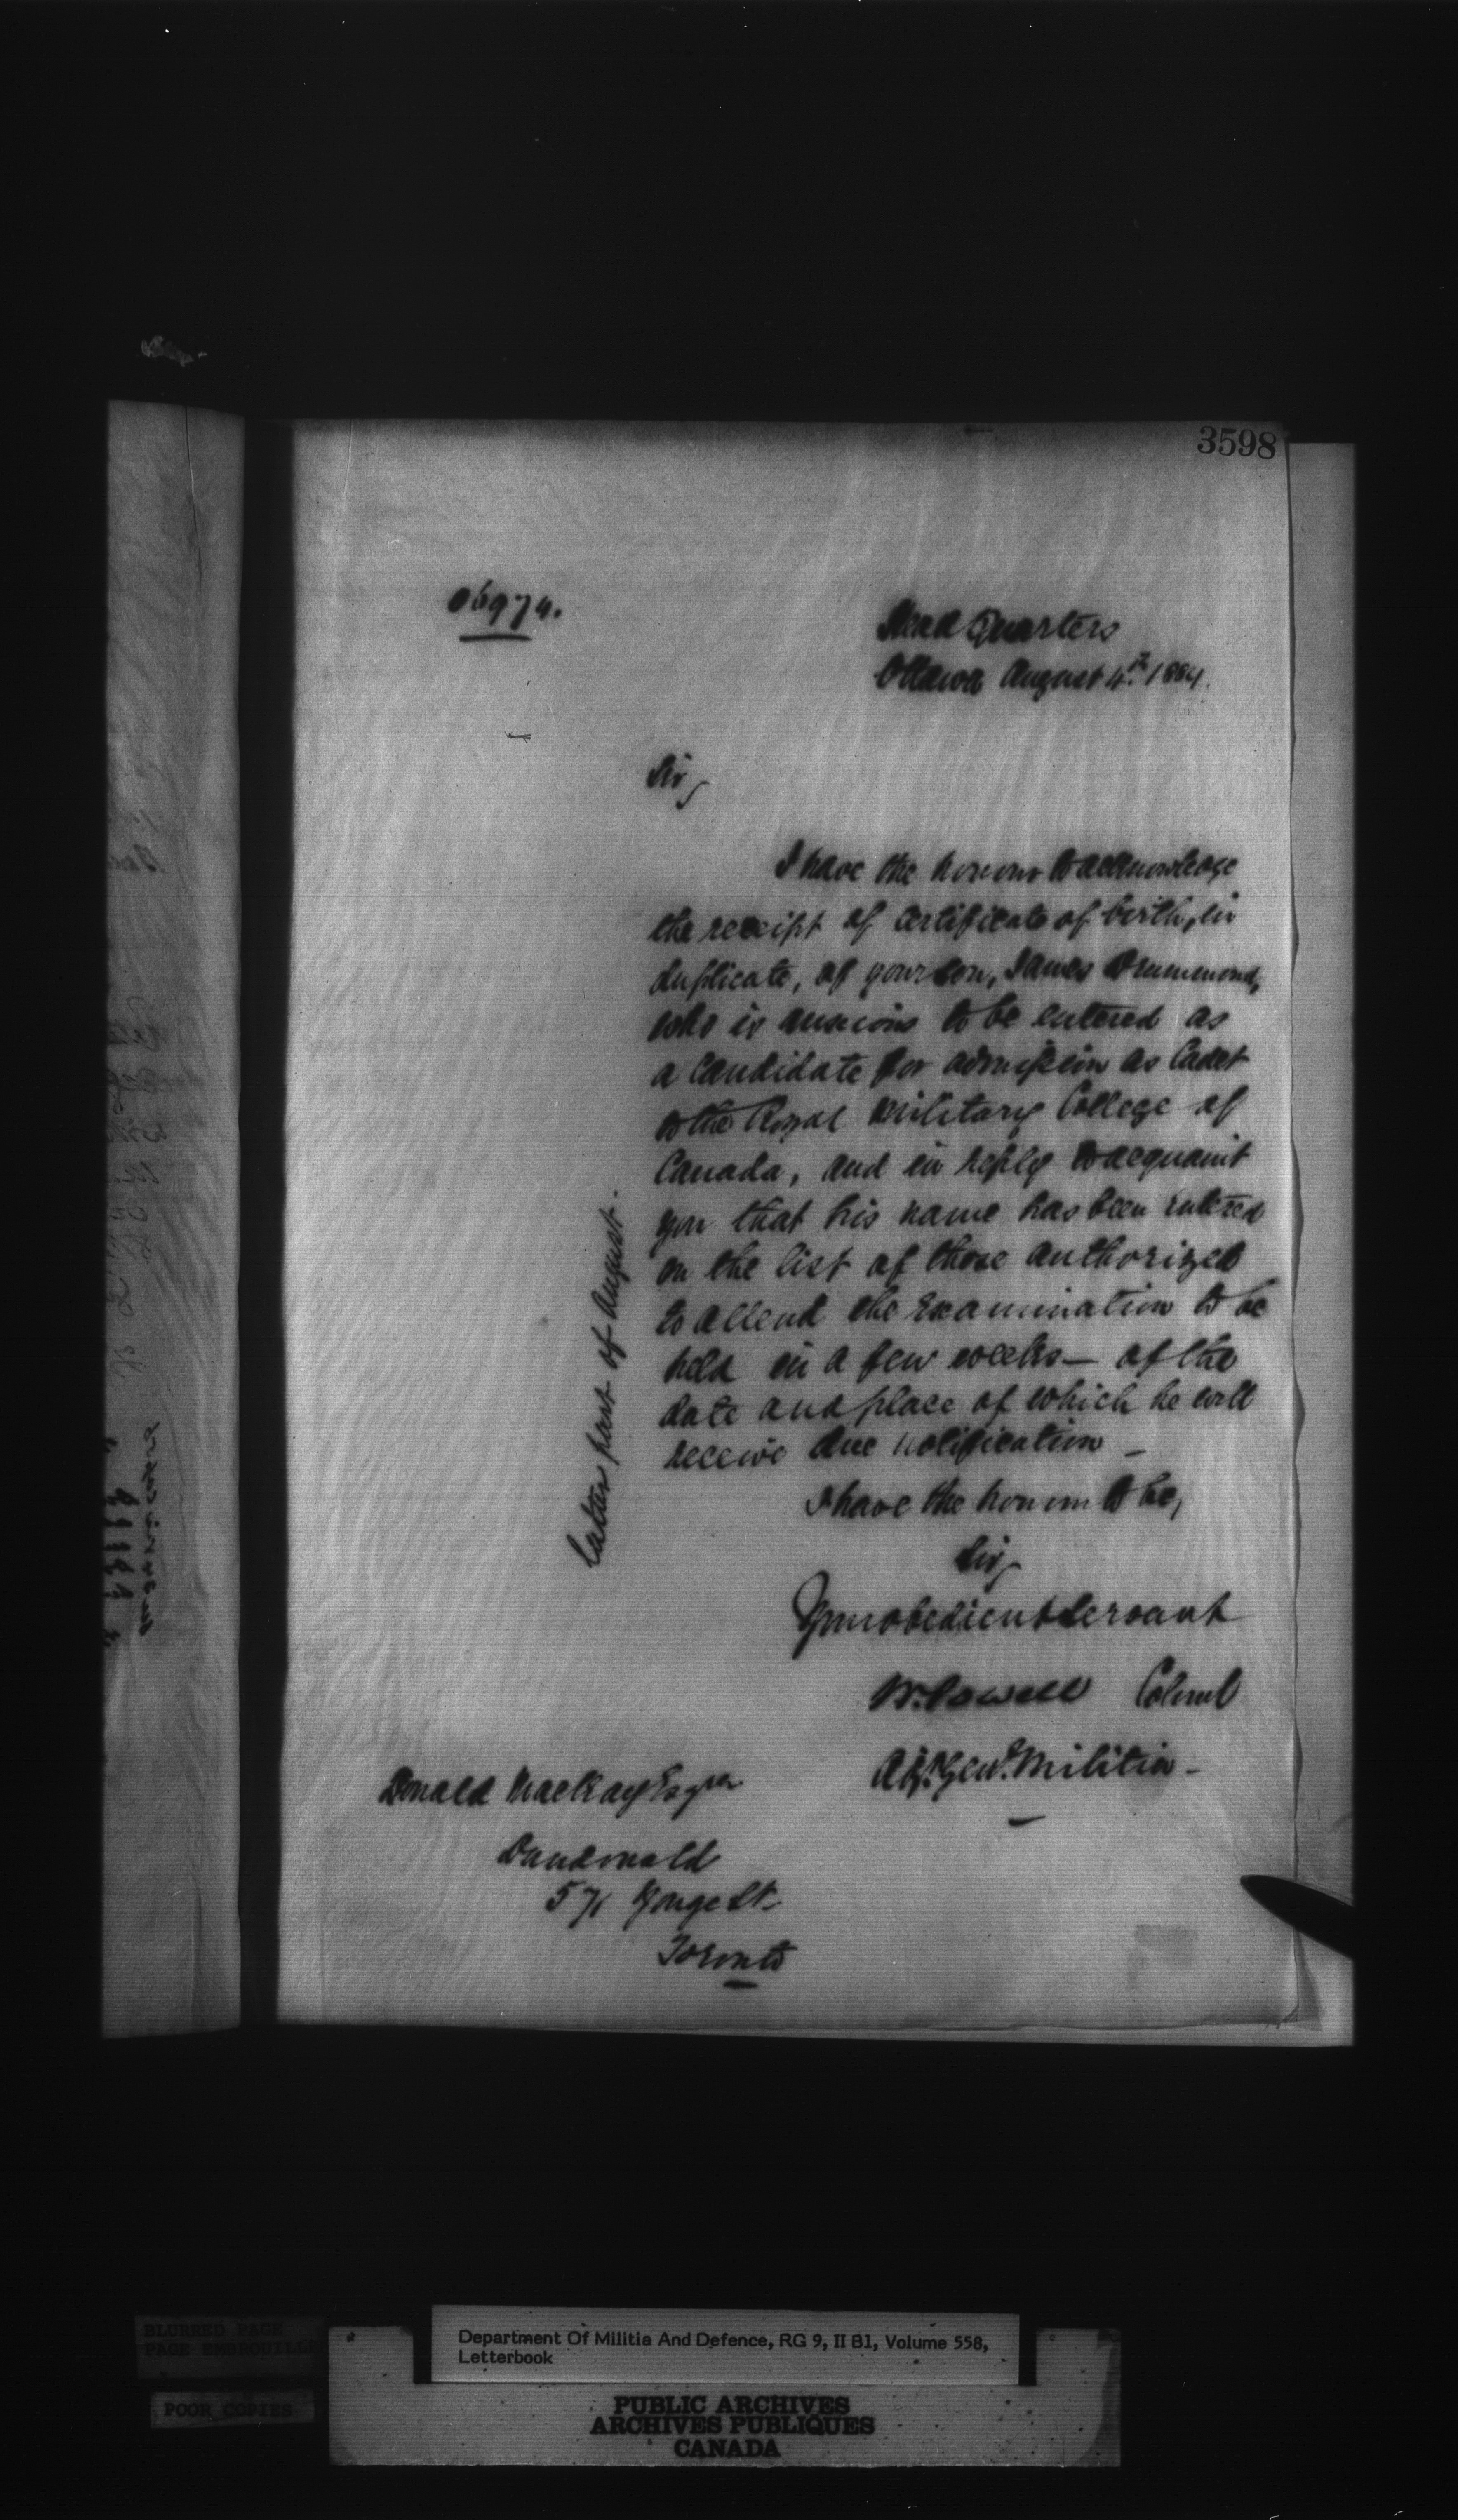 3598
06974.
Head Quarters
Ottawa August 4th 1884.
Sir,
I have the honour to acknowledge
the receipt of certificate of birth, in
duplicate, of your son, James Drummond,
who is anxious to be entered as
a Candidate for admission as Cadet
to the Royal Military College of
Canada, and in reply to acquaint
you that his name has been entered
on the list of those authorized
to attend the Examination to be
held in a few weeks — of the
date and place of which he will
receive due notification —
latter part of August.
I have the honour to be,
Sir,
Your obedient Servant
W. Powell Colonel
Adjt. Genl. Militia —
Donald MacKay Esqre
Dundonald
571 Yonge St.
Toronto
BLURRED PAGE
PAGE EMBROUILLÉE
POOR COPIES
Department Of Militia And Defence, RG 9, II B1, Volume 558,
Letterbook
PUBLIC ARCHIVES
ARCHIVES PUBLIQUES
CANADA